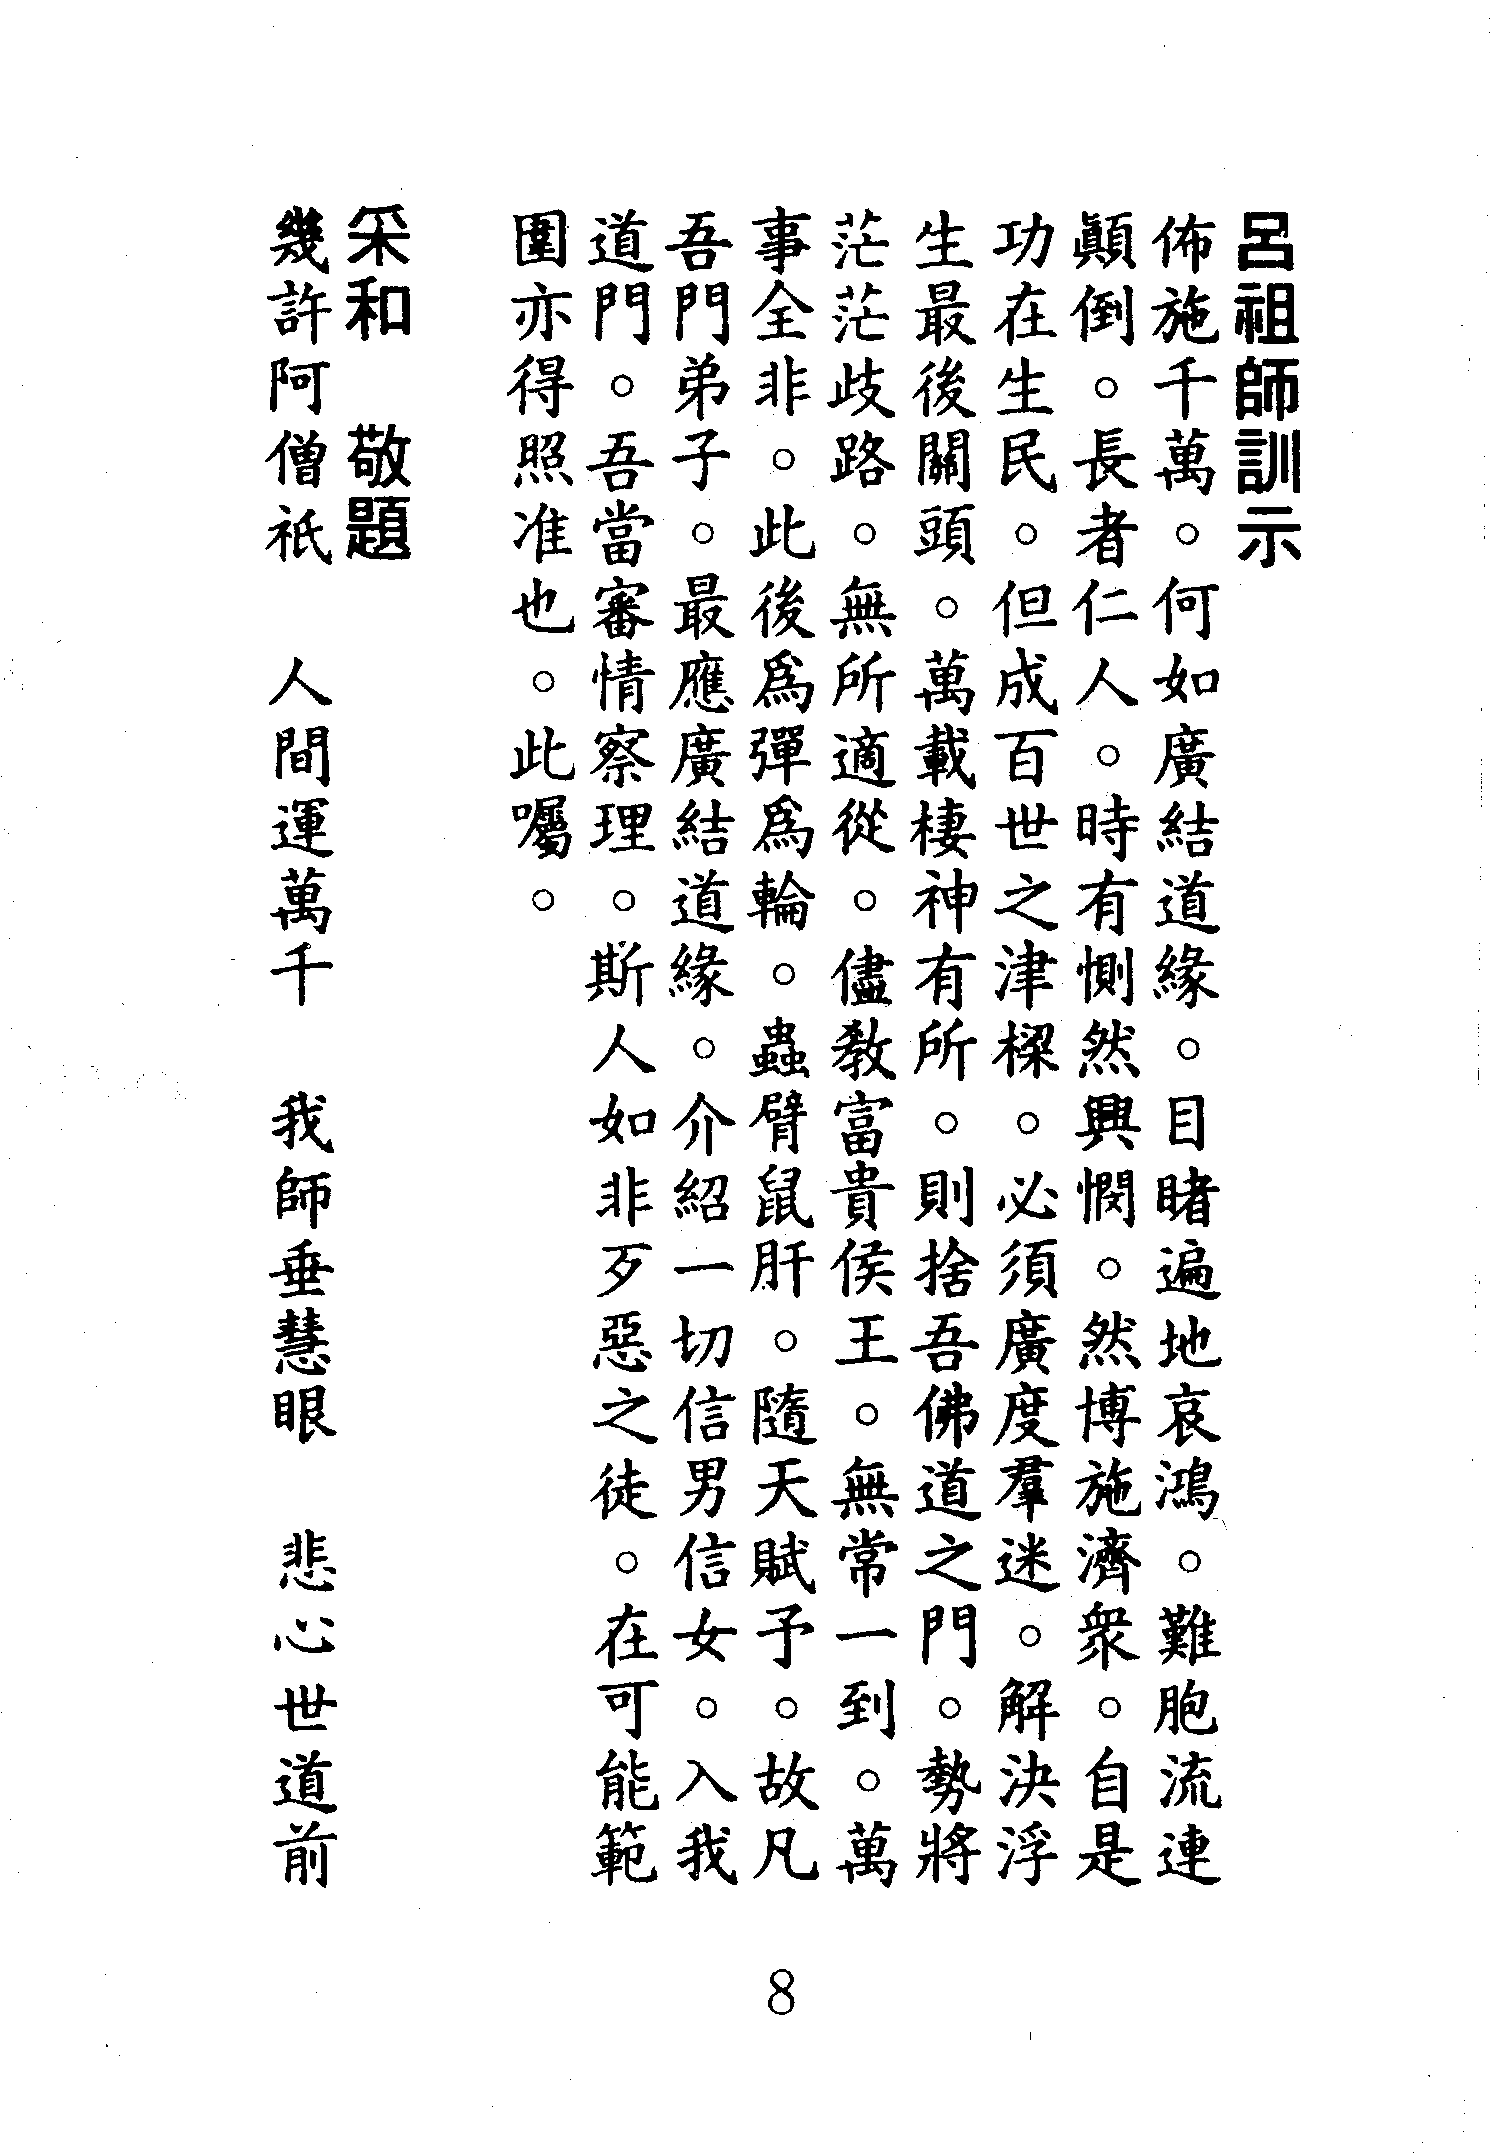 呂祖師訓示
佈施千萬。何如廣結道緣。目睹遍地哀鴻。難胞流連
顛倒。長者仁人。時有惻然興憫。然博施濟衆。自是
功在生民。但成百世之津樑。必須廣度羣迷。解決浮
生最後關頭。萬載棲神有所。則捨吾佛道之門。勢將
茫茫歧路。無所適從。儘教富貴侯王。無常一到。萬
事全非。此後爲彈爲輪。蟲臂鼠肝。隨天賦予。故凡
吾門弟子。最應廣結道緣。介紹一切信男信女。入我
道門。吾當審情察理。斯人如非歹惡之徒。在可能範
圍亦得照准也。此囑。
采和　敬題
幾許阿僧祇　人間運萬千　我師垂慧眼　悲心世道前
8